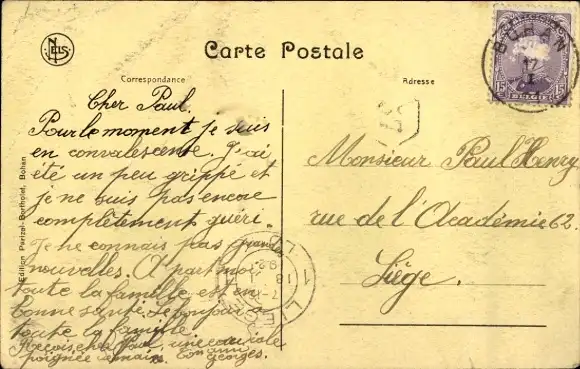 NELS
Carte Postale
Correspondance
Adresse
BOHAN
17
1
15 15
BELGIË
Cher Paul,
Pour le moment je suis
en convalescence. J'ai
été un peu grippé et
je ne suis pas encore
complètement guéri.
Je ne connais pas grandes
nouvelles. A part moi,
toute la famille est en
bonne santé. Le bonjour à
toute la famille.
Reçois, cher Paul, une cordiale
poignée de main. Ton ami
Georges.
Monsieur Paul Henry
rue de l'Académie 62.
Liège.
Edition Parizel-Bertholet, Bohan